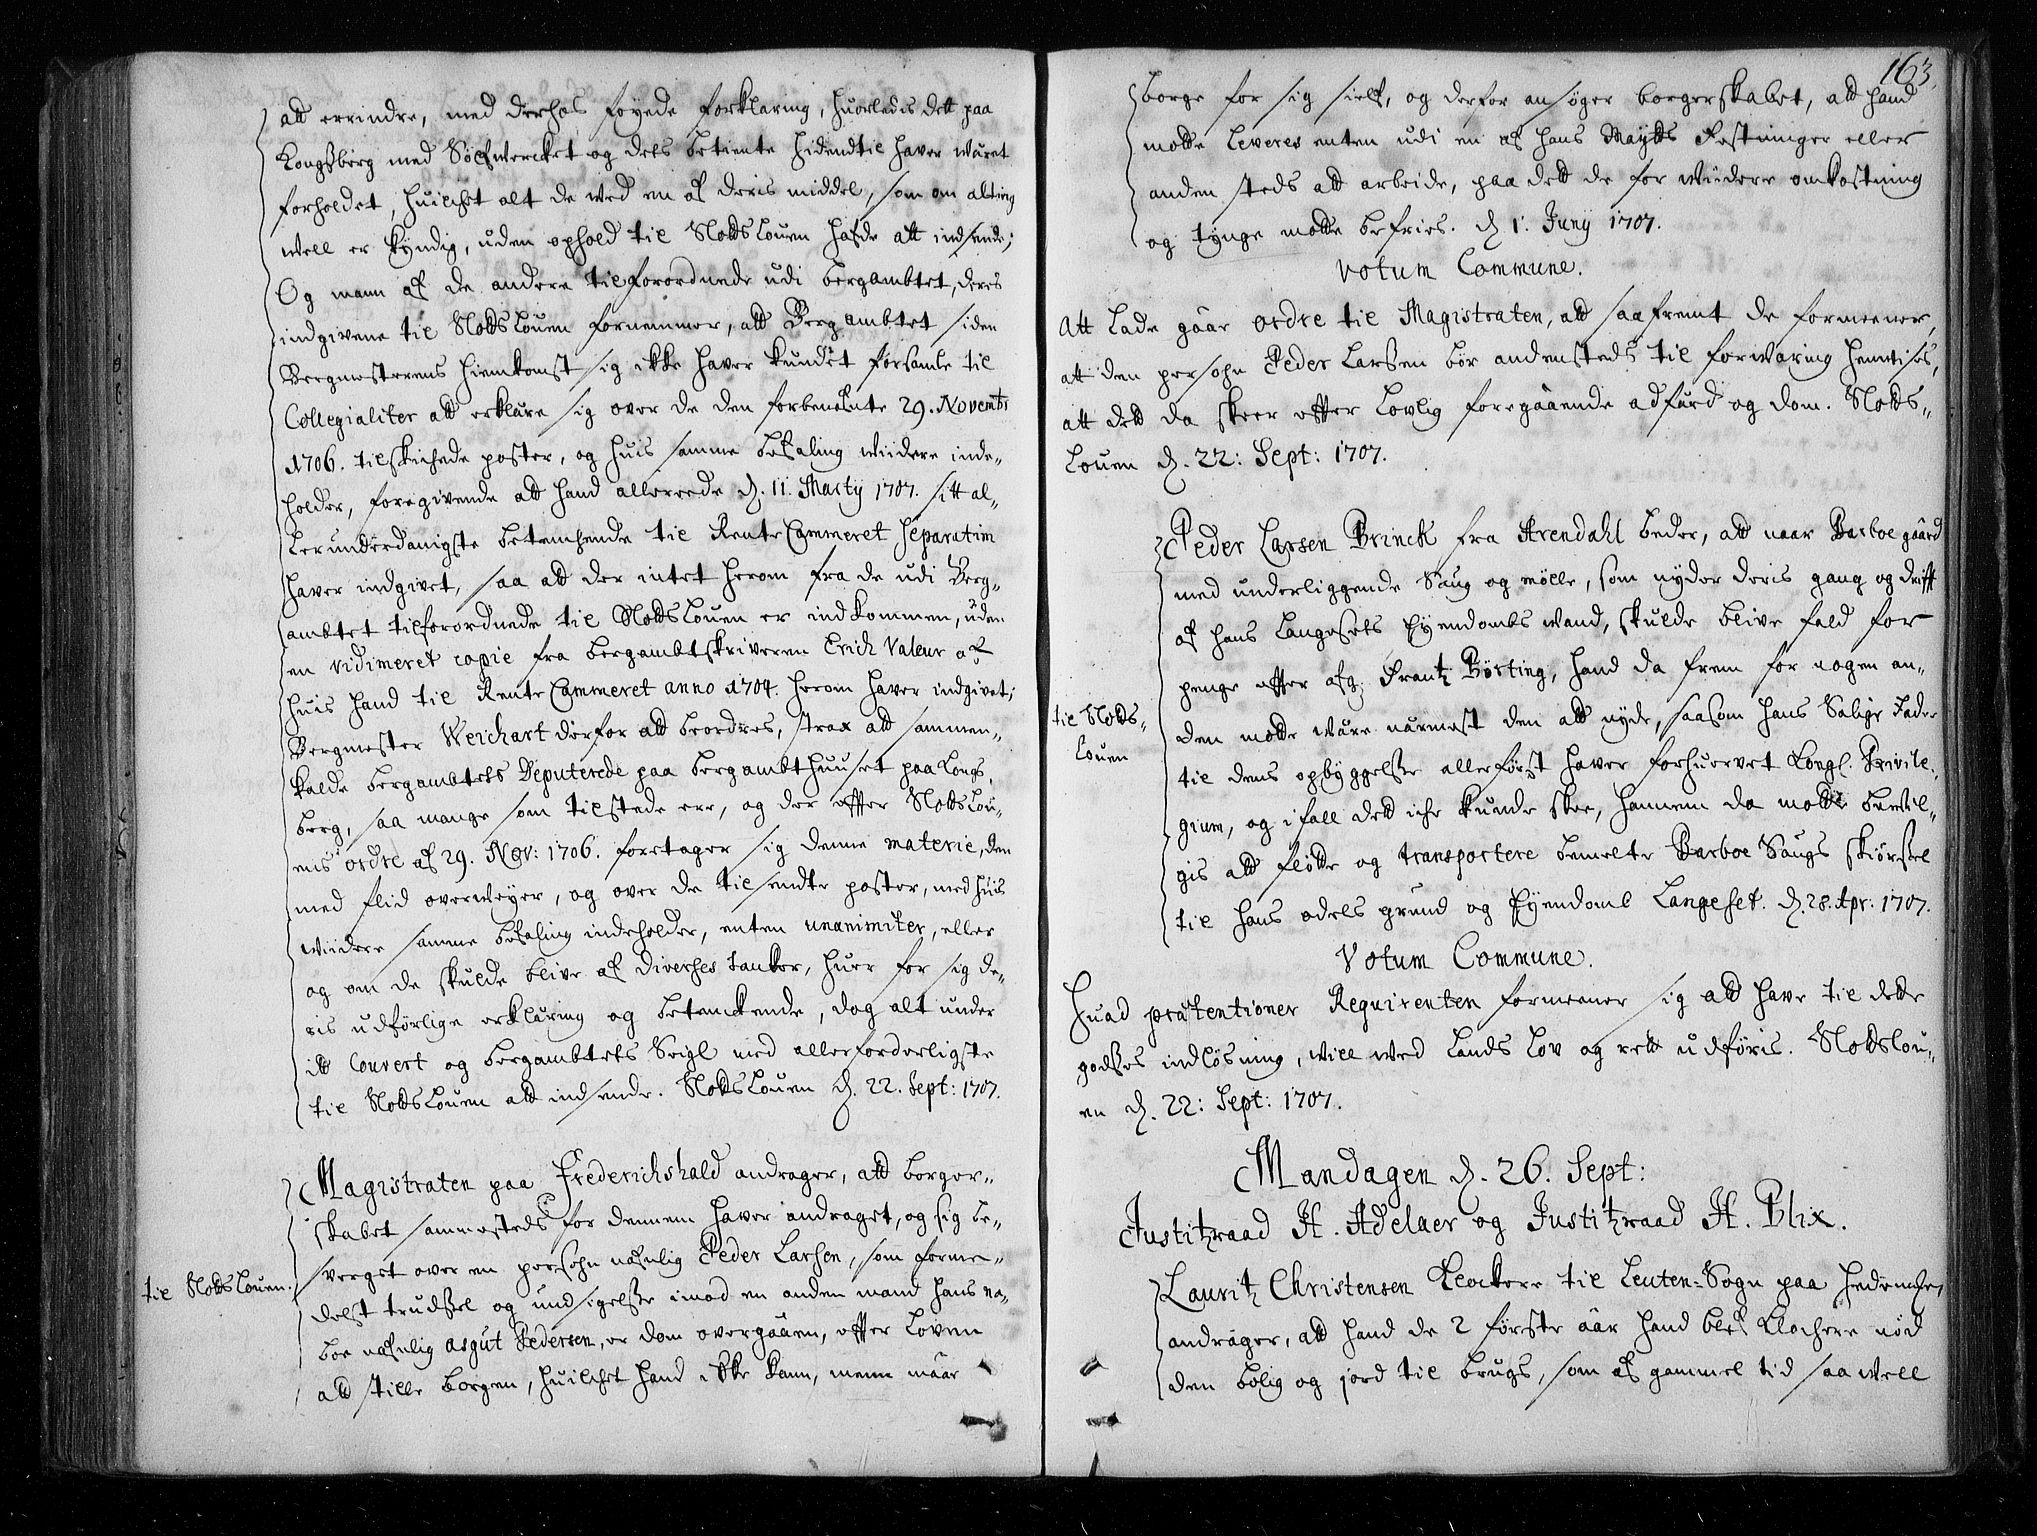 att errindre, med derhos føyede forklaring, huorledis dett paa
Kongßberg med Sølfwercket og dets betiente hidendtil hafver wæret
forholdet, huilchet alt de wed en af deris middel, som om alting
well er kyndig, uden ophold til Slodslouen hafde att indsende;
Og mann af de andere tilforordnede udi bergambtet, deres
indgivene til Slodslouen fornemmer, att Bergambtet siden
Bergmesterens hiemkomst sig ikke hafver kundet forsamle til
Collegialiter att erklære sig over de den forbenefnte 29. Novembr
1706. tilskichede poster, og huis samme befaling widere inde-
holder, foregivende att hand allereede d. 11. Marty 1707. sitt al-
lerunderdanigste betenchende til RenteCammeret separatim
hafver indgivet, saa att der intet herom fra de udi Berg-
ambtet tilforordnede til Slodslouen er indkommen, uden
en vidimeret copie fra bergambtskriveren Erich Valeur af
huis hand til RenteCammeret anno 1704. herom hafver indgivet;
Bergmester Weichart derfor att beordres, strax att sammen-
kalde bergambtets Deputerede paa bergambthuuset paa Kongs-
berg, saa mange som tilstede err, og der effter Slodslou-
ens ordre af 29. Nov: 1706. foretager sig denne materie, den
med flid overweyer, og over de tilsendte poster, med huis
widere samme befaling indeholder, enten unanimiter, eller
og om de skulde blive af diverses tanker, huer for sig de-
ris udførlige erklæring og betenckende, dog alt under
itt Couvert og bergambtets Seigl med allerforderligste
til Slodslouen att indsende. Slodslouen d. 22. Sept: 1707.
Magistraten paa Frederichshald andrager, att borger-
skabet sammesteds for dennem hafver andraget, og sig be-
sverget over en persohn nafnlig Peder Larsen, som forme-
til Slodslouen.
delst trudßel og undsigelße imod en anden mand hans na-
boe nafnlig asgut Pedersen, er dom overgaaen, effter loven
att stille borgen, huilchet hand ikke kann, menn maae
163.
borge for sig sielf, og derfor ansøger borgerskabet, att hand
motte leveres enten udi en af hans Maytts Festninger eller
anden steds att arbeide, paa dett de for widere omkostning
og tynge motte befries. d 1. Juny 1707.
votum Commune.
Att lade gaae ordre til Magistraten, att saafremt de formeener,
att den persohn Peder Larßen bør andensteds til forwaring henvises,
att dett da skeer effter lovlig foregaaende adfærd og dom. Slods-
louen d. 22: Sept: 1707.
Peder Larsen Brinck fra Arendahl beder, att naar Barboe gaard
med underliggende Saug og mølle, som nyder deris gang og drifft
af hans Langesets Eyendombs wand, skulde blive fald for
penge effter afg: Frantz Børting, hand da frem for nogen an-
til Slods-
louen
den motte wære nærmest den att nyde, saasom hans Salige Fader
til dens opbyggelße allerførst hafver forhuervet Kongl. Privile-
gium, og ifall dett iche kunde skee, hannem da motte bevil-
gis att fløtte og transportere bemelte Barboe Saugs skiørßel
til hans odels grund og Eyendomb Langeset. d. 28. Apr: 1707.
Votum Commune.
Huad prætentioner Requirenten formeener sig att hafve til dette
godßes indløsning, will wed Lands lov og rett udføris. Slodslou-
en d. 22: Sept: 1707.
Mandagen d. 26. Sept:
Justitzraad H. Adelaer og Justitzraad H. Blix.
Lauritz Christensen Klockere til Leuten-Sogn paa Hedemarken
andrager, att hand de 2 første aar hand blef Klochere nød
den bolig og jord til brugs, som af gammel tid saa well